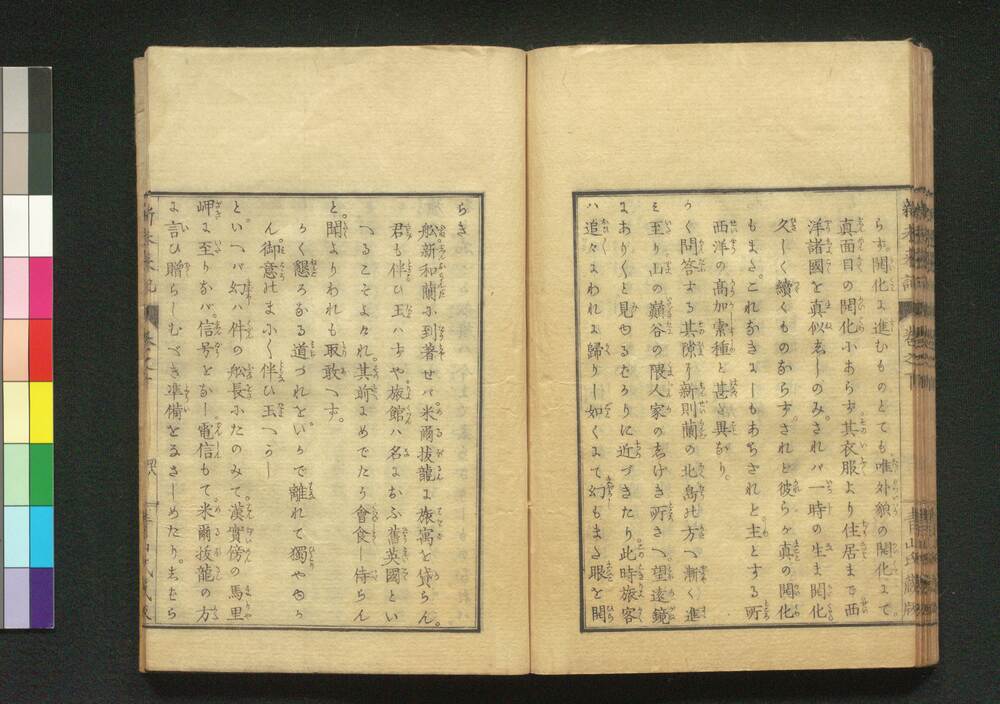 らず。開化に進むものとても唯外貌の開化にて
真面目の開化にあらず其衣服より住居まで西
洋諸國を真似ゑしのみ。されバ一時の生ま開化
久しく續くものならず。されど彼らが真の開化
もまた。これなきにしもあらざれど主とする所
西洋の高加索種と甚と異なり。
かく問答する其隙に新則蘭の北島の方へ漸く進
み至り山の巓谷の隈人家のあげき所さへ望遠鏡
にありくと見ゆるばかりに近づきたり。此時旅客
ハ追々にわれに歸りし如くにて幻もまた眼を開
らき
舩新和蘭に到著せバ米爾拔龍に旅寓を貸らん。
君も伴ひ玉ハずや旅館ハ名におふ舊英國とい
へるこそよけれ。其前にめでたく會食し侍らん
と。聞よりわれも取敢へず。
かく懇ろなる道づれをいかで離れて獨やゆか
ん御意のまにく伴ひ玉へかし
と。いへバ幻ハ件の舩長にたのみて。漢實傍の馬里
岬に至りなバ。信号をなし電信もて。米爾拔龍の方
に言ひ贈らしむべき準備をなさしめたり。去ほら
新未来記
巻之下
青山氏蔵版